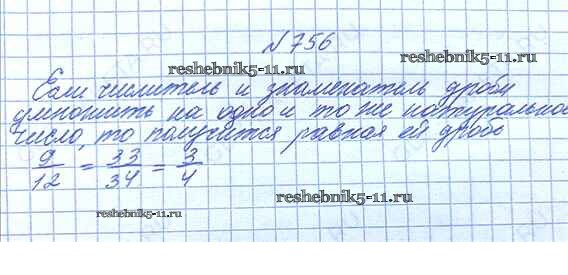 №756
reshebnik5-11.ru reshebnik5-11.ru
Если числитель и знаменатель дроби
умножить на одно и то же натуральное
число, то получится равная ей дробь
9/12 = 33/34 = 3/4
reshebnik5-11.ru
reshebnik5-11.ru